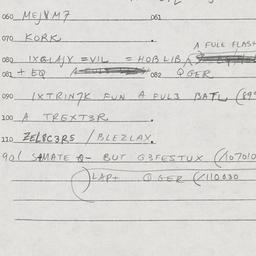 060 MEJVM7 061
070 KORK
A FULE FLASH
080 IXGLAJX = VIL = HOBLIB
081 + EQ 082 QGER
090 IXTRIN7K FUN A FUL3 BATL (89
100 A TREXT3R
110 ZEL8C3RS / BLEZLAX
90( SAMATE Q- BUT G3FESTUX (/107010
LAP+ QGER (/110030